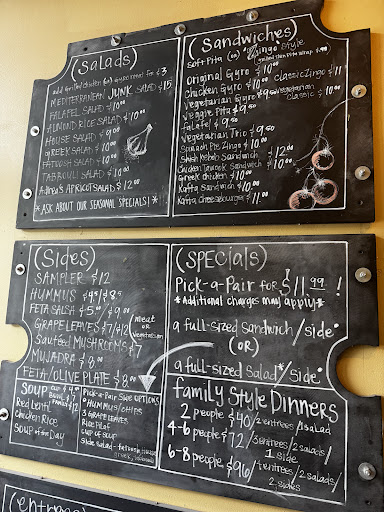 (Salads)
add Grilled Chicken (or) Gyro meat for $3
MEDITERRANEAN JUNK SALAD $15
FALAFEL SALAD $10.00
ALMOND RICE SALAD $10.00
HOUSE SALAD $9.00
GREEK SALAD $10.00
FATTOUSH SALAD $10.00
TABBOULI SALAD $10.00
APRICOT SALAD $12.00
*ASK ABOUT OUR SEASONAL SPECIALS!*
(Sandwiches)
Soft Pita (or) Zingo Style
Grilled thin Pita wrap $.99
Original Gyro $10.00
Chicken Gyro $10.00
Vegetarian Gyro $9.50
Veggie Pita $9.50
falafel $9.50
Vegetarian Trio $9.50
Spinach Pie Zingo $10.00
Shish Kebob Sandwich $12.00
Chicken Tawook Sandwich $10.00
Greek Chicken $10.00
Kafta Sandwich $10.00
Kafta Cheeseburger $11.00
Classic Zingo $11
Vegetarian
Classic $10.00
(Sides)
SAMPLER $12
HUMMUS $8.50
FETA SALSA $5.00/$9.00
GRAPE LEAVES $7/$12
meat
OR
Vegetarian
Sauteed MUSHROOMS $7
MUJADRA $8.00
FETA/OLIVE PLATE $8.00
SOUP CUP $4
BOWL $7
FAMILY $12
Red Lentil
Chicken Rice
SOUP of the Day
Pick-a-Pair Side OPTIONS
HUMMUS/chips
3 GRAPE LEAVES
RICE PILAF
CUP OF SOUP
Side Salad - fattoush, house,
greek, tabbouli
(SPECIALS)
Pick-a-Pair for $11.99!
*Additional charges may apply*
a full-sized Sandwich/side*
(OR)
a full-sized Salad*/Side*
family Style Dinners
2 people $40/2 entrees/1 salad
4-6 people $72/3 entrees/2 salads/
1 side
6-8 people $96/4 entrees/2 salads/
2 sides
(entrees